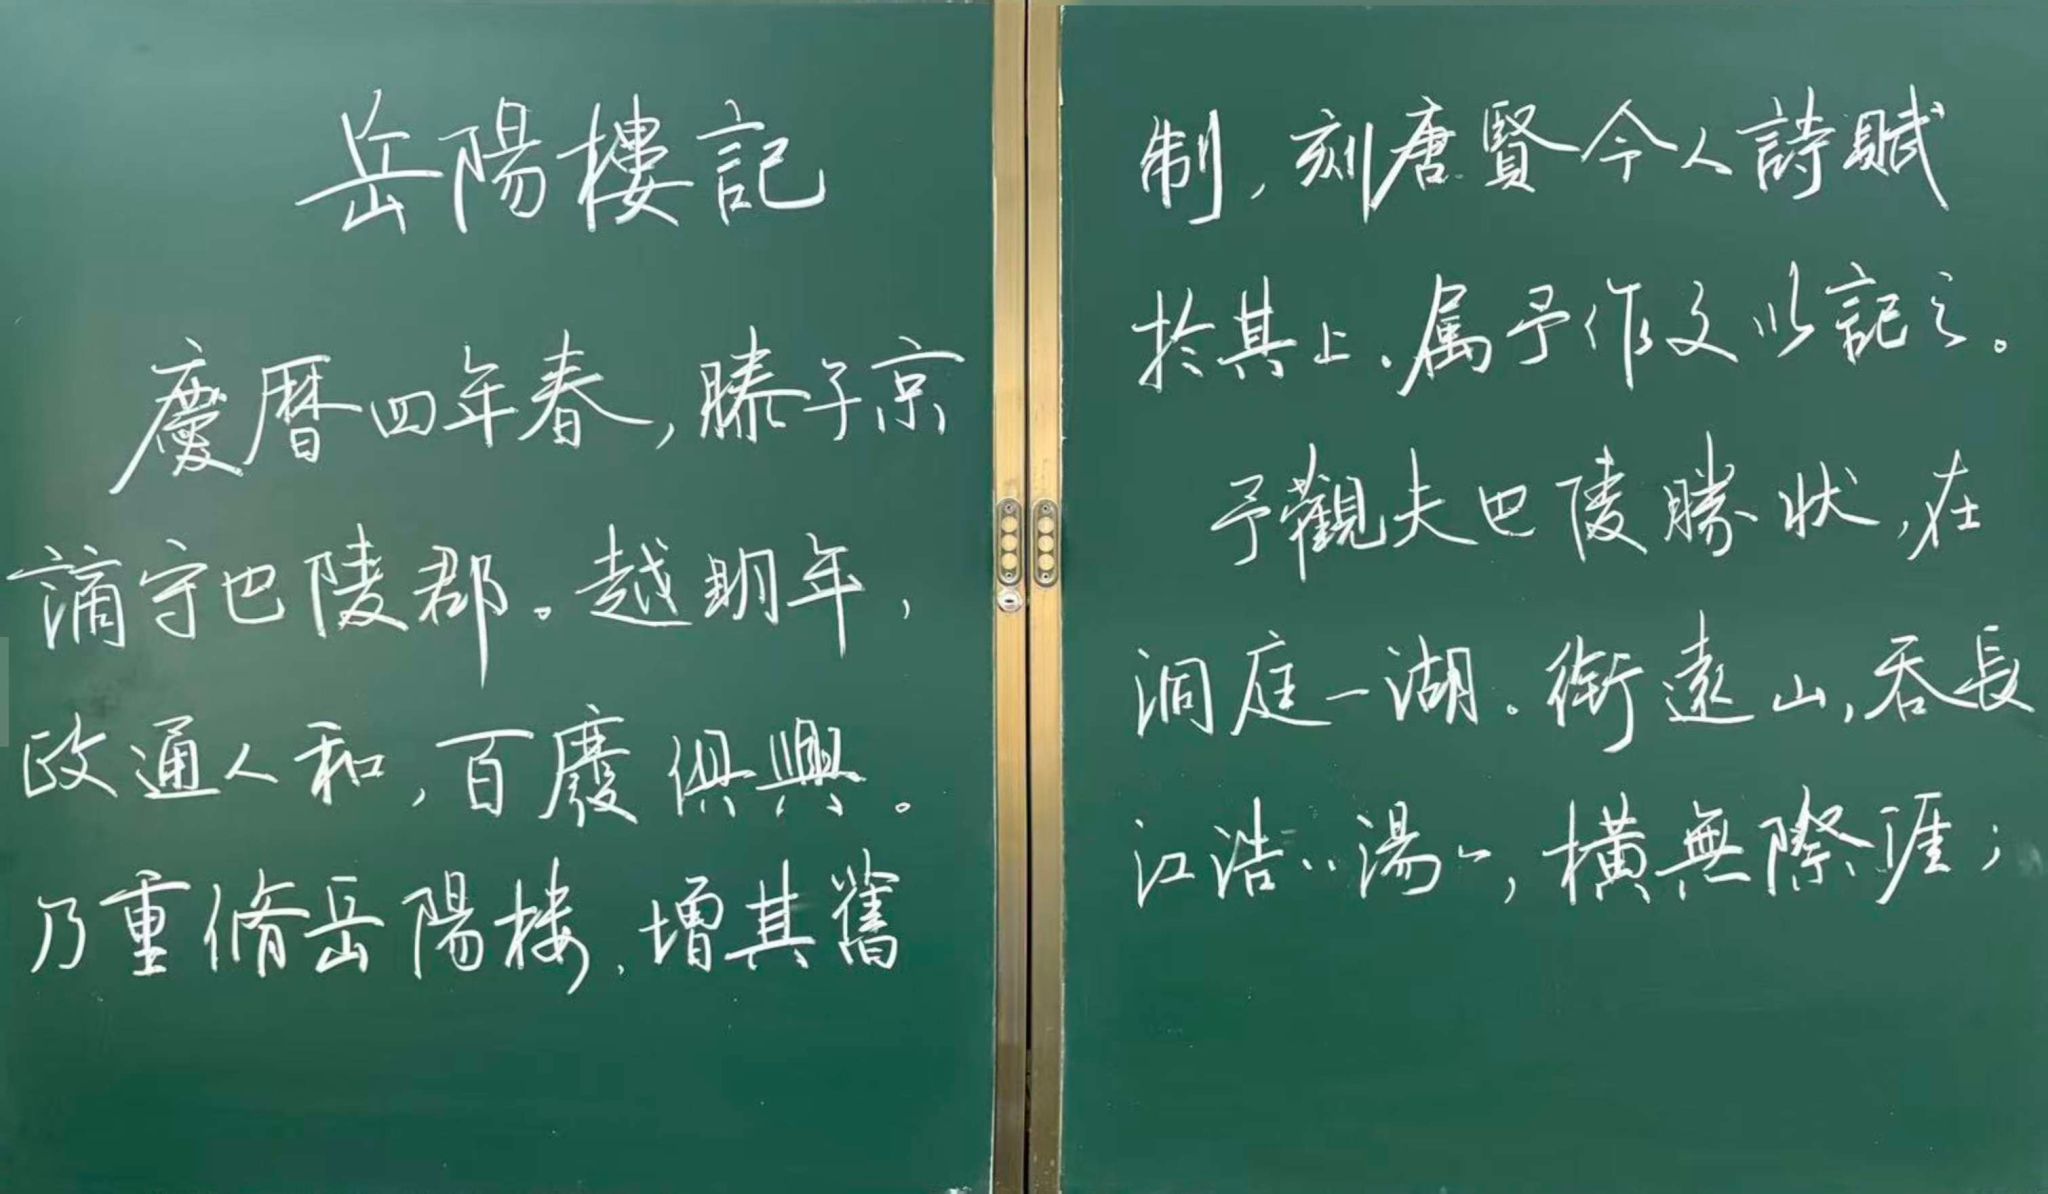 岳陽樓記
慶曆四年春,滕子京
謫守巴陵郡。越明年,
政通人和,百廢俱興。
乃重脩岳陽楼,增其舊
制,刻唐賢今人詩賦
於其上.属予作文以記之。
予觀夫巴陵勝狀,在
洞庭一湖.銜遠山,吞長
江浩〃湯〃,橫無際涯;